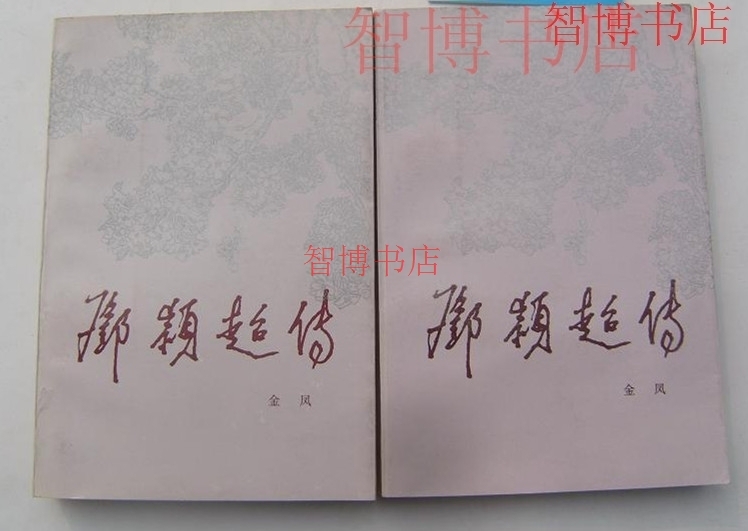 智博书店
智博书店
智博书店
鄧颖超传
金凤
鄧颖超传
金凤